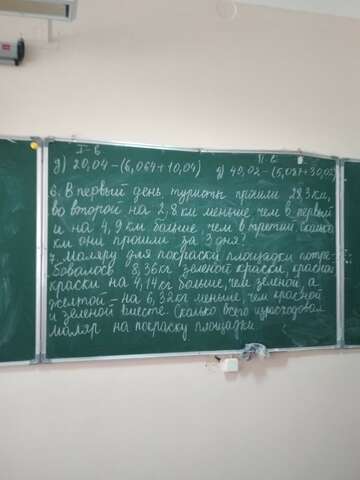 I-в II в
д) 20,04-(6,064+10,04) д) 40,02-(5,087+30,02)
6. В первый день туристы прошли 28,3 км,
во второй на 2,8 км меньше, чем в первый
и на 4,9 км больше, чем в третий. Сколько
км они прошли за 3 дня?
7. Маляру для покраски площадки потре-
бовалось 8,36 кг зеленой краски, красной
краски на 4,14 кг больше, чем зеленой, а
желтой - на 6,32 кг меньше, чем красной
и зеленой вместе. Сколько всего израсходовал
маляр на покраску площадки.